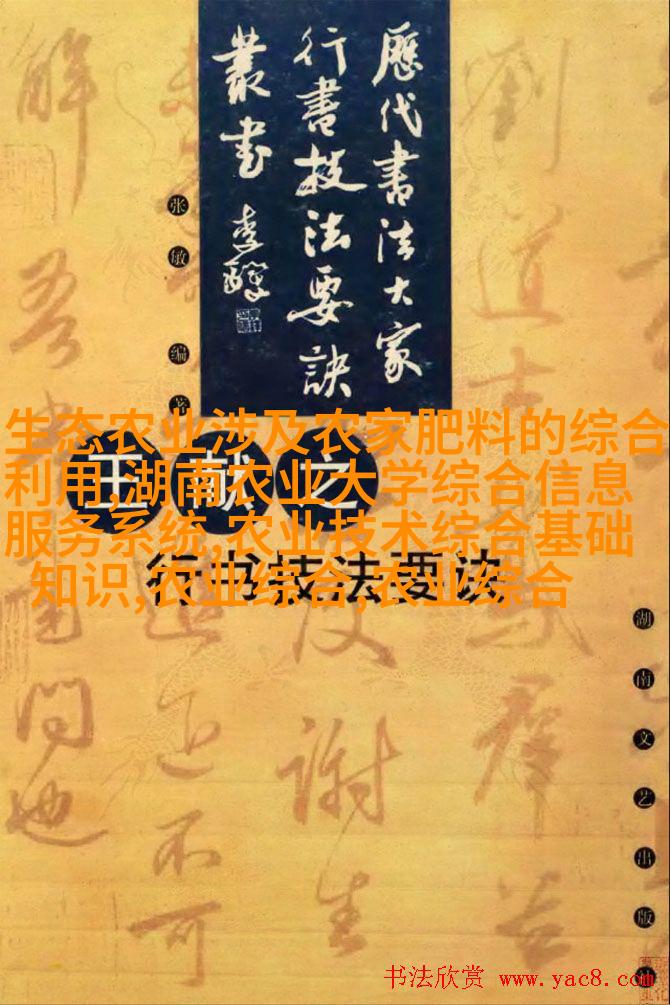 歷代書法大家
行書技法要訣
叢書
李鐸
张敏编著
生态农业涉及农家肥料的综合
利用,湖南农业大学综合信息
服务系统,农业技术综合基础
知识,农业综合,农业综合
王献之
行书技法要诀
湖南文艺出版社
解
吾
劉道
謝生
問也
近不可
群
书法欣赏 www.yac8.com